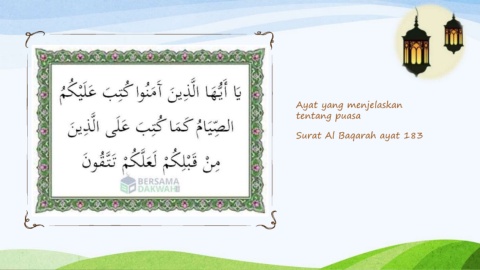 يَا أَيُّهَا الَّذِينَ آمَنُوا كُتِبَ عَلَيْكُمُ
الصِّيَامُ كَمَا كُتِبَ عَلَى الَّذِينَ
مِنْ قَبْلِكُمْ لَعَلَّكُمْ تَتَّقُونَ
BERSAMA
DAKWAH
Ayat yang menjelaskan
tentang puasa
Surat Al Baqarah ayat 183